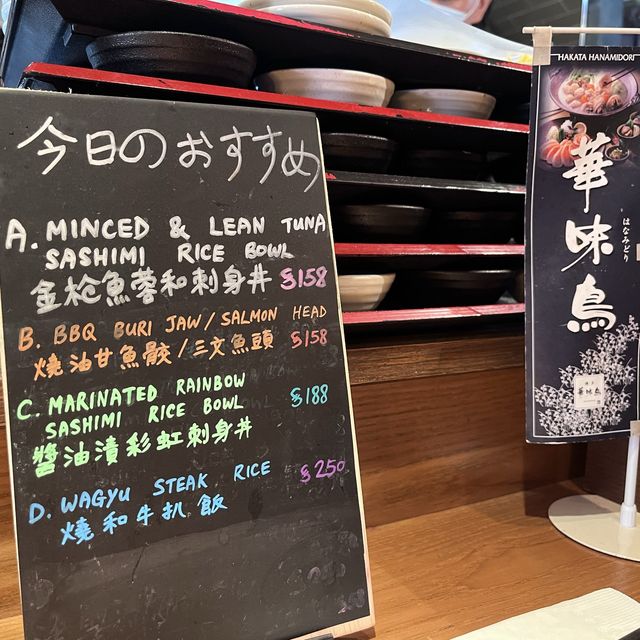 今日のおすすめ
A. MINCED & LEAN TUNA
SASHIMI RICE BOWL
金枪魚蓉和刺身丼 $158
B. BBQ BURI JAW / SALMON HEAD
燒油甘魚鮫 / 三文魚頭 $158
C. MARINATED RAINBOW
SASHIMI RICE BOWL $188
醬油漬彩虹刺身丼
D. WAGYU STEAK RICE $250
燒和牛扒飯
HAKATA HANAMIDORI
華味鳥
はなみどり
華味鳥